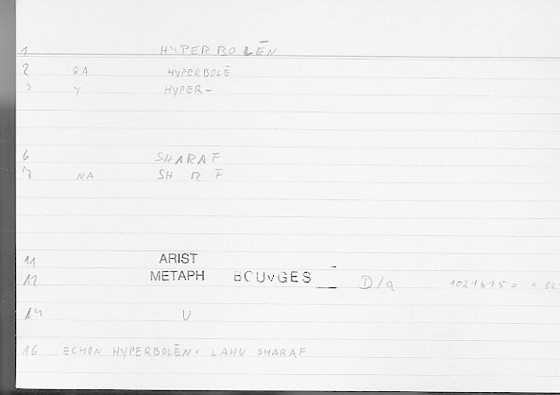 1 HYPERBOLĒN
2 GA HYPERBOLĒ
3 Y HYPER-
6 SHARAF
7 NA SH R F
11 ARIST
12 METAPH BOUvGES D/q 1021b15
14 U
16 ECHON HYPERBOLĒN. LAHU SHARAF